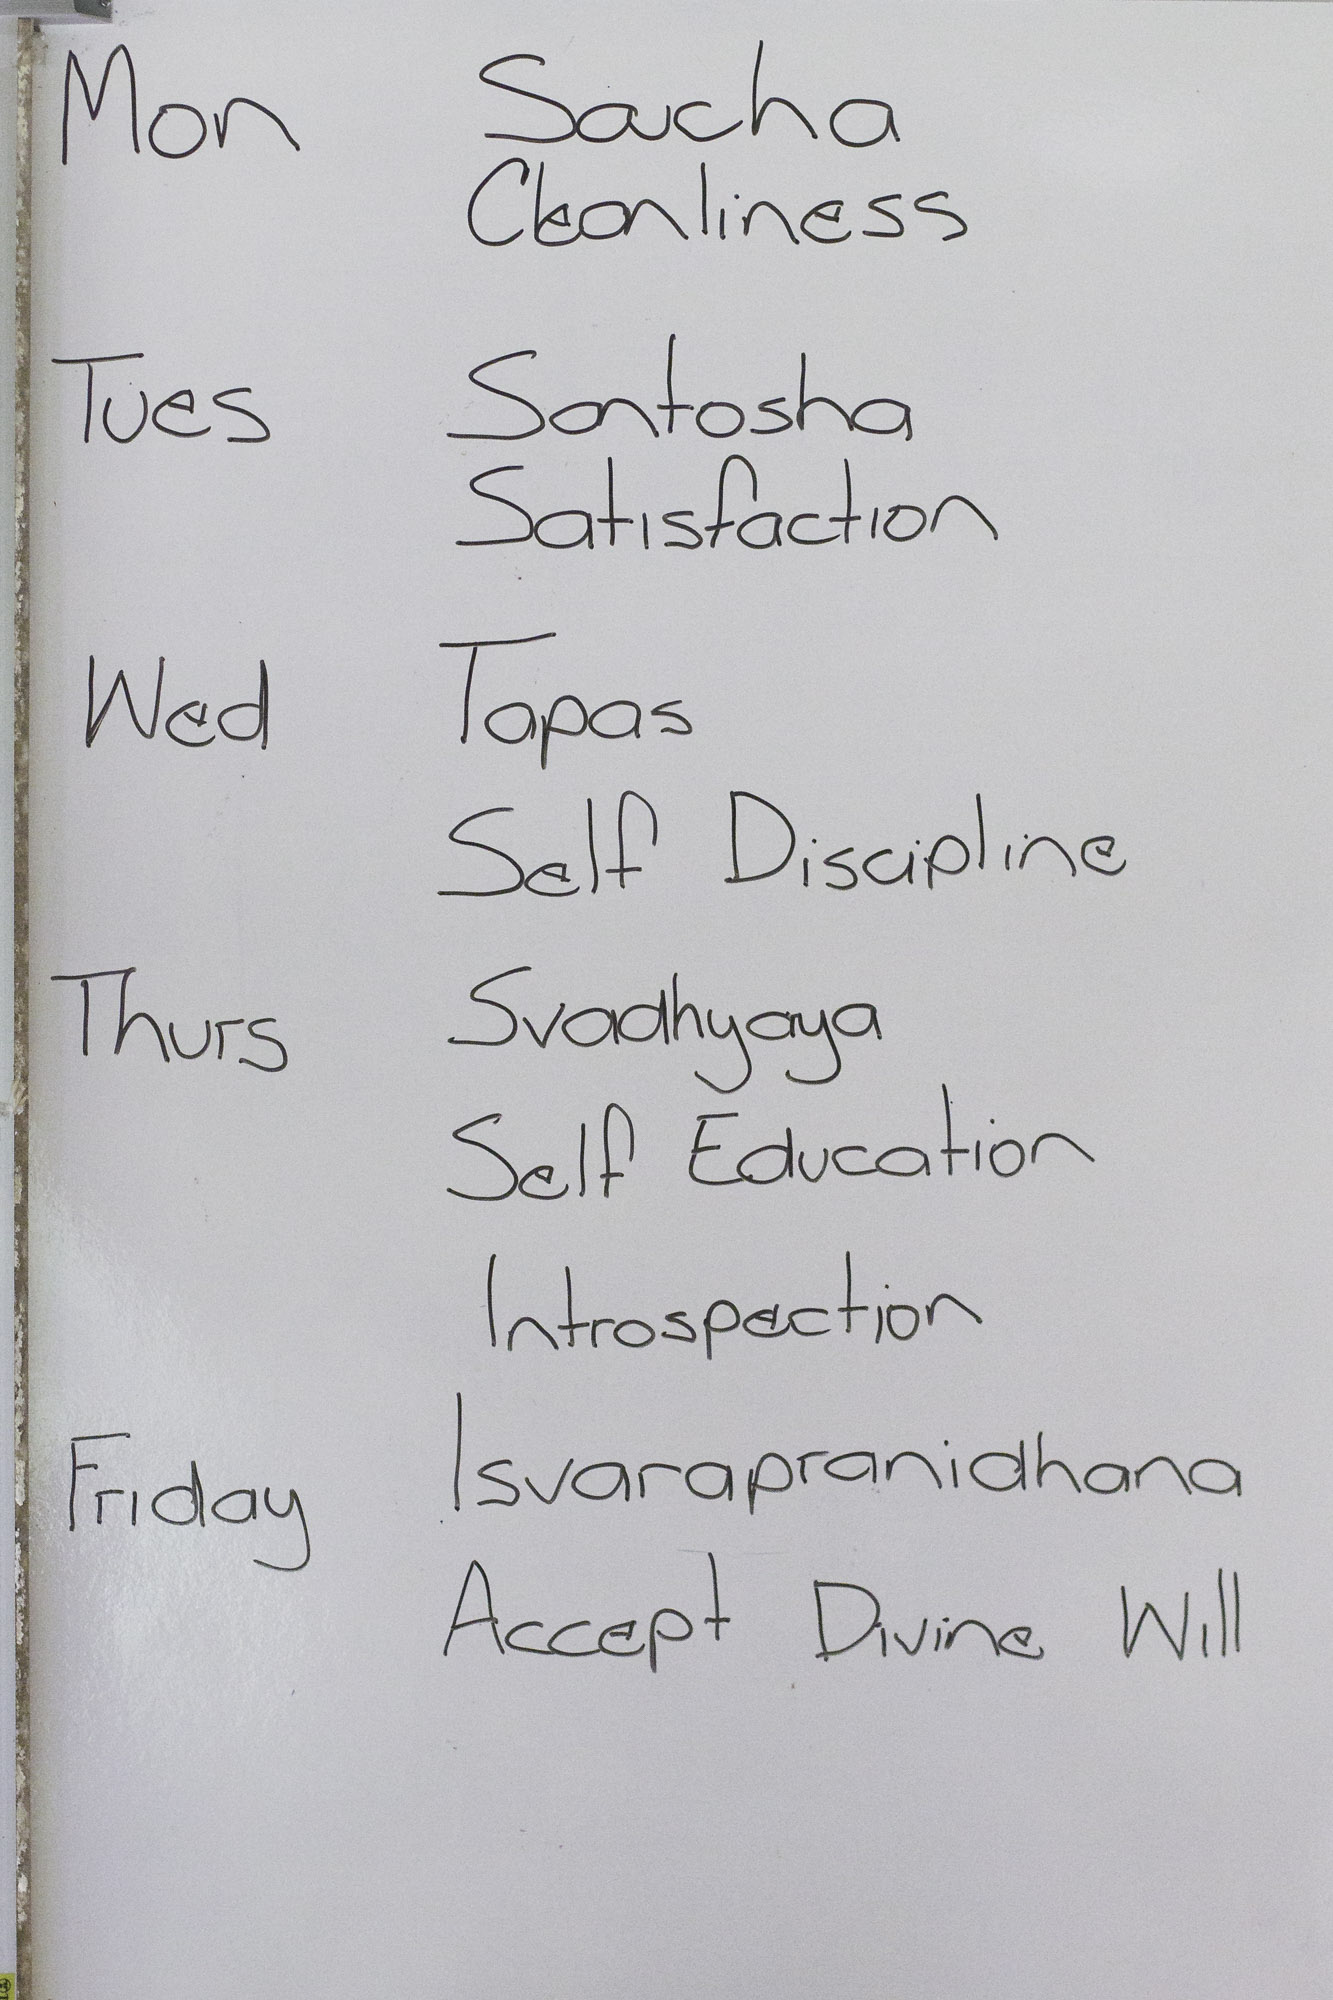 Mon Saucha
Cleanliness
Tues Santosha
Satisfaction
Wed Tapas
Self Discipline
Thurs Svadhyaya
Self Education
Introspection
Friday Isvarapranidhana
Accept Divine Will